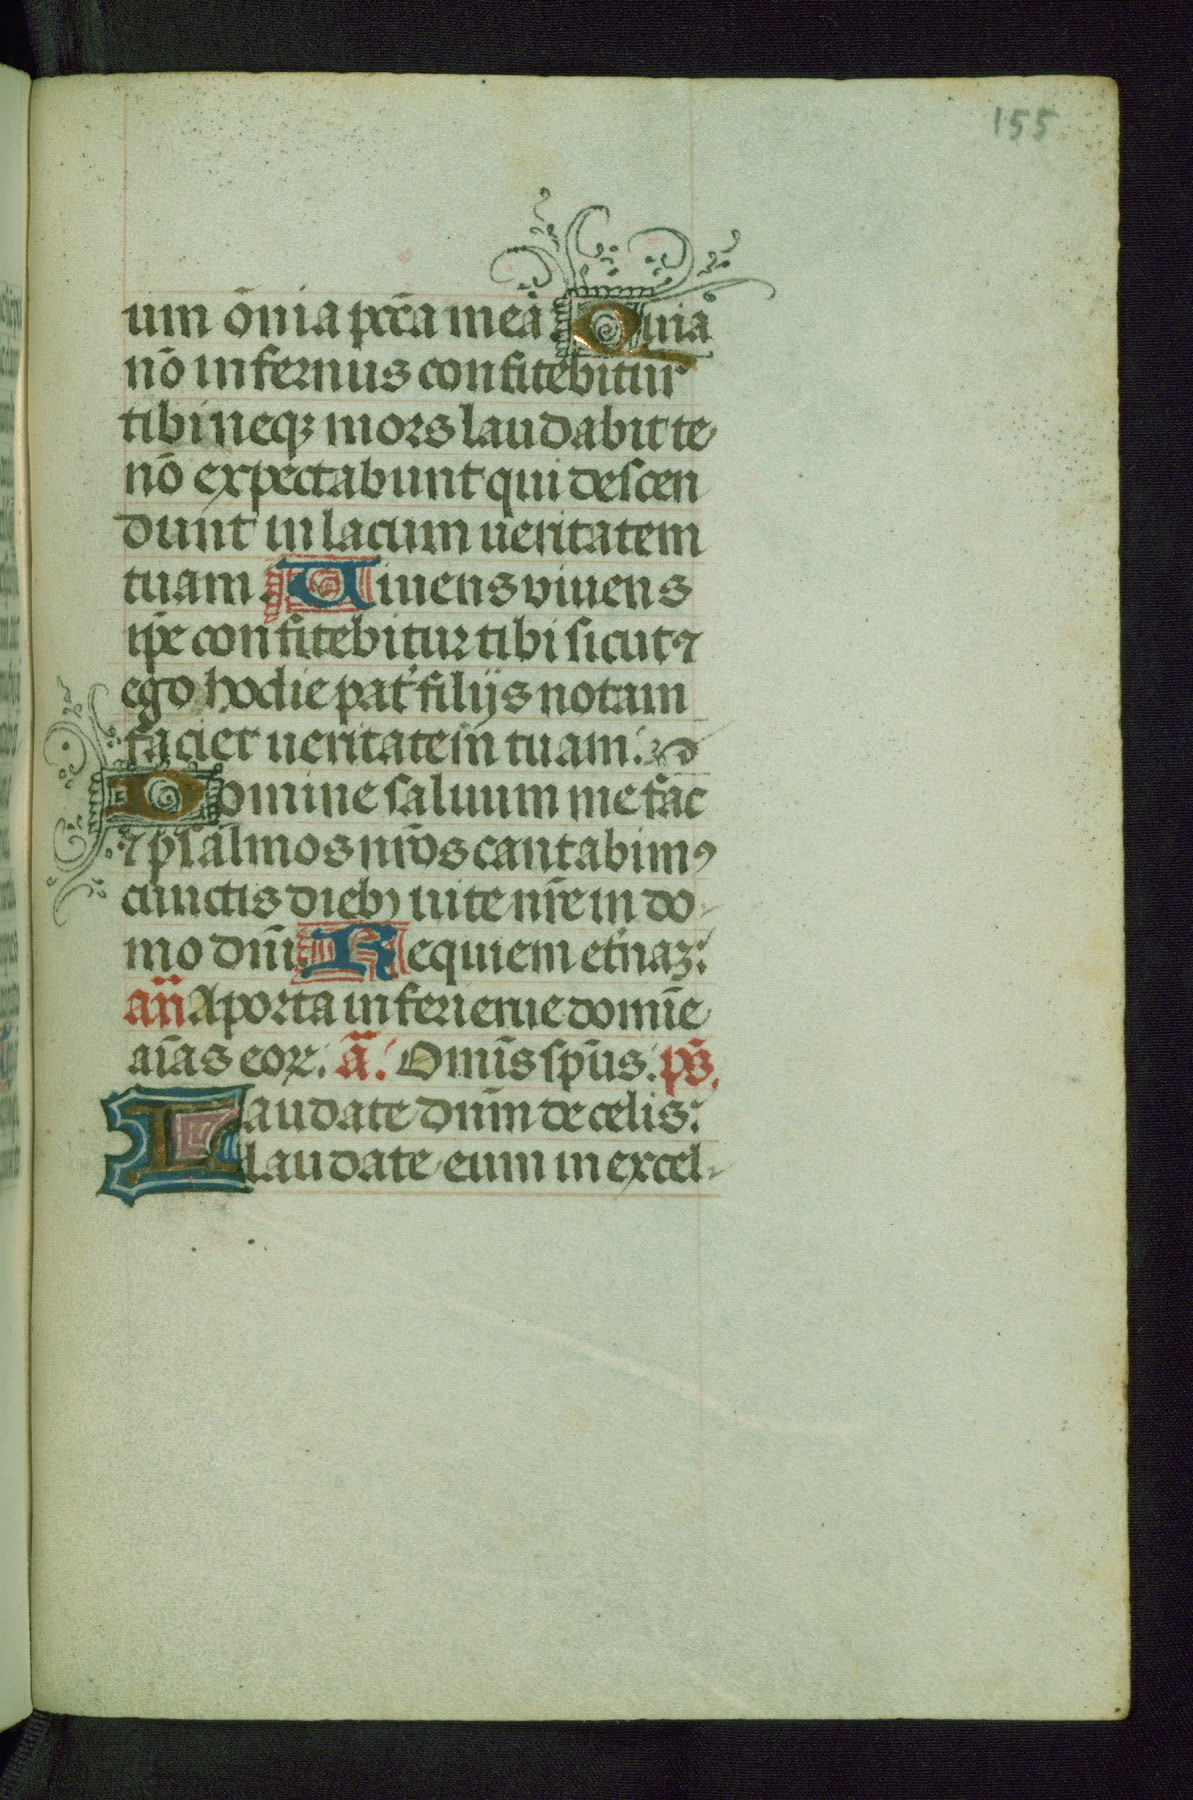 155
um ōnia pcc̄a mea. Quia
nō infernus confitebitur
tibi neqꝫ mors laudabit te
nō expectabunt qui descen
dunt in lacum ueritatem
tuam. Uiuens viuens
ip̄e confitebitur tibi sicut ⁊
ego hodie pat̄ filijs notam
faciet ueritatem tuam.
Domine saluum me fac
⁊ psalmos nr̄os cantabimꝰ
cunctis diebꝫ uite nr̄e in do
mo dn̄i. Requiem et̄naꝫ:
an̄ A porta inferi erue domīe
aīas eoꝝ. ā. Omīs sp̄us. ps̄.
Laudate dn̄m de celis:
laudate eum in excel-